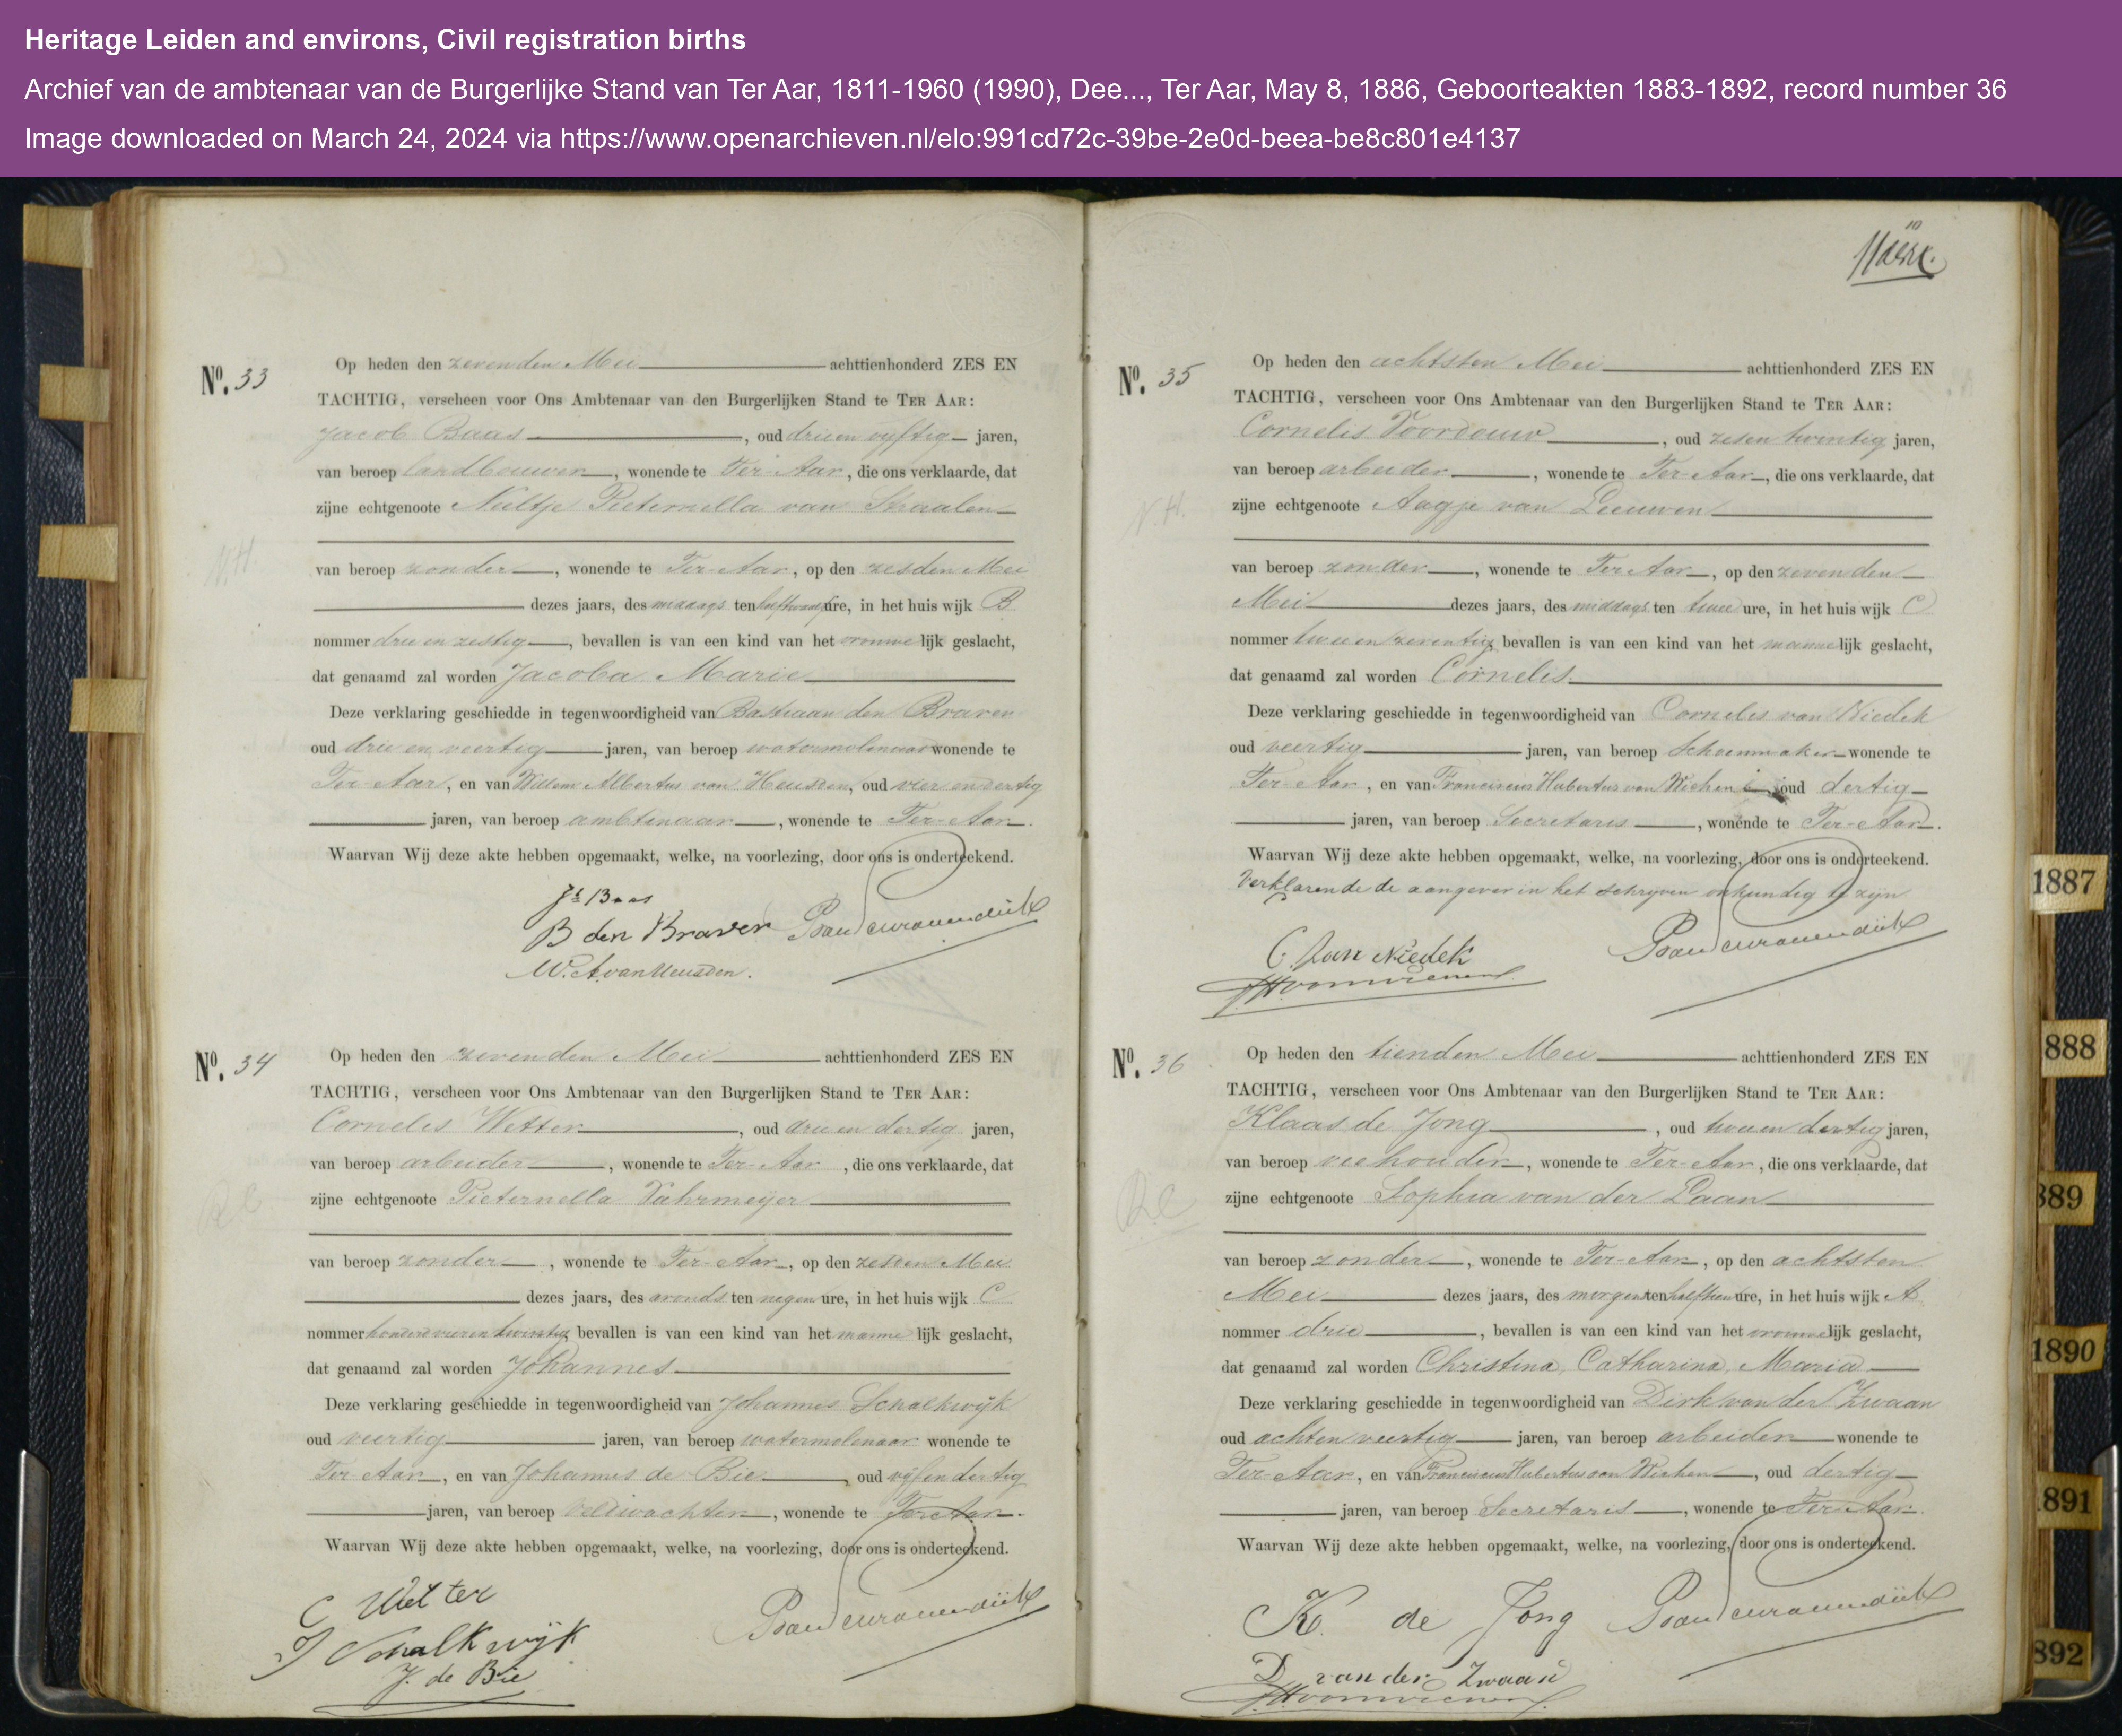 Heritage Leiden and environs, Civil registration births
Archief van de ambtenaar van de Burgerlijke Stand van Ter Aar, 1811-1960 (1990), Dee..., Ter Aar, May 8, 1886, Geboorteakten 1883-1892, record number 36
Image downloaded on March 24, 2024 via https://www.openarchieven.nl/elo:991cd72c-39be-2e0d-beea-be8c801e4137
Nº. 33
Op heden den zevenden Mei achttienhonderd ZES EN
TACHTIG, verscheen voor Ons Ambtenaar van den Burgerlijken Stand te TER AAR:
Jacob Baas, oud drie en vyftig jaren,
van beroep landbouwer, wonende te Ter-Aar, die ons verklaarde, dat
zijne echtgenoote Neeltje Pieternella van Straalen
N.H.
van beroep zonder, wonende te Ter-Aar, op den zesden Mei
dezes jaars, des middags ten ure, in het huis wijk B
nommer drie en zestig, bevallen is van een kind van het vrouwelijk geslacht,
dat genaamd zal worden Jacoba Marie
Deze verklaring geschiedde in tegenwoordigheid van Bastiaan den Braver
oud drie en veertig jaren, van beroep watermolenaar wonende te
Ter-Aar, en van Willem Albertus van Heusden, oud vier en dertig
jaren, van beroep ambtenaar, wonende te Ter-Aar.
Waarvan Wij deze akte hebben opgemaakt, welke, na voorlezing, door ons is onderteekend.
Jb Baas
B den Braver
W. A. van Heusden.
Nº. 34
Op heden den zevenden Mei achttienhonderd ZES EN
TACHTIG, verscheen voor Ons Ambtenaar van den Burgerlijken Stand te TER AAR:
Cornelis Wetter, oud drie en dertig jaren,
van beroep arbeider, wonende te Ter-Aar, die ons verklaarde, dat
zijne echtgenoote Pieternella Vahrmeijer
RC
van beroep zonder, wonende te Ter-Aar, op den zesden Mei
dezes jaars, des avonds ten negen ure, in het huis wijk C
nommer honderd vier en twintig bevallen is van een kind van het mannelijk geslacht,
dat genaamd zal worden Johannes
Deze verklaring geschiedde in tegenwoordigheid van Johannes Schalkwijk
oud veertig jaren, van beroep watermolenaar wonende te
Ter-Aar, en van Johannes de Bie, oud vijf en dertig
jaren, van beroep veldwachter, wonende te Ter-Aar.
Waarvan Wij deze akte hebben opgemaakt, welke, na voorlezing, door ons is onderteekend.
C Wetter
J Schalkwijk
J. de Bie
10
Nº. 35
Op heden den achtsten Mei achttienhonderd ZES EN
TACHTIG, verscheen voor Ons Ambtenaar van den Burgerlijken Stand te TER AAR:
Cornelis Voordouw, oud zes en twintig jaren,
van beroep arbeider, wonende te Ter-Aar, die ons verklaarde, dat
zijne echtgenoote Aagje van Leeuwen
N.H.
van beroep zonder, wonende te Ter Aar, op den zevenden
Mei dezes jaars, des middags ten twee ure, in het huis wijk C
nommer twee en zeventig bevallen is van een kind van het mannelijk geslacht,
dat genaamd zal worden Cornelis.
Deze verklaring geschiedde in tegenwoordigheid van Cornelis van Niedek
oud veertig jaren, van beroep Schoenmaker wonende te
Ter-Aar, en van Franciscus Hubertus van Wichen, oud dertig
jaren, van beroep Secretaris, wonende te Ter-Aar.
Waarvan Wij deze akte hebben opgemaakt, welke, na voorlezing, door ons is onderteekend.
Verklarende de aangever in het schrijven onkundig te zijn
C. van Niedek
Nº. 36
Op heden den tienden Mei achttienhonderd ZES EN
TACHTIG, verscheen voor Ons Ambtenaar van den Burgerlijken Stand te TER AAR:
Klaas de Jong, oud twee en dertig jaren,
van beroep veehouder, wonende te Ter-Aar, die ons verklaarde, dat
zijne echtgenoote Sophia van der Laan
RC
van beroep zonder, wonende te Ter-Aar, op den achtsten
Mei dezes jaars, des morgens ten half tien ure, in het huis wijk A
nommer drie, bevallen is van een kind van het vrouwelijk geslacht,
dat genaamd zal worden Christina, Catharina, Maria
Deze verklaring geschiedde in tegenwoordigheid van Dirk van der Zwaan
oud acht en veertig jaren, van beroep arbeider wonende te
Ter-Aar, en van Franciscus Hubertus van Wichen, oud dertig
jaren, van beroep Secretaris, wonende te Ter Aar.
Waarvan Wij deze akte hebben opgemaakt, welke, na voorlezing, door ons is onderteekend.
K. de Jong
D van der Zwaan
1887
888
889
1890
891
892